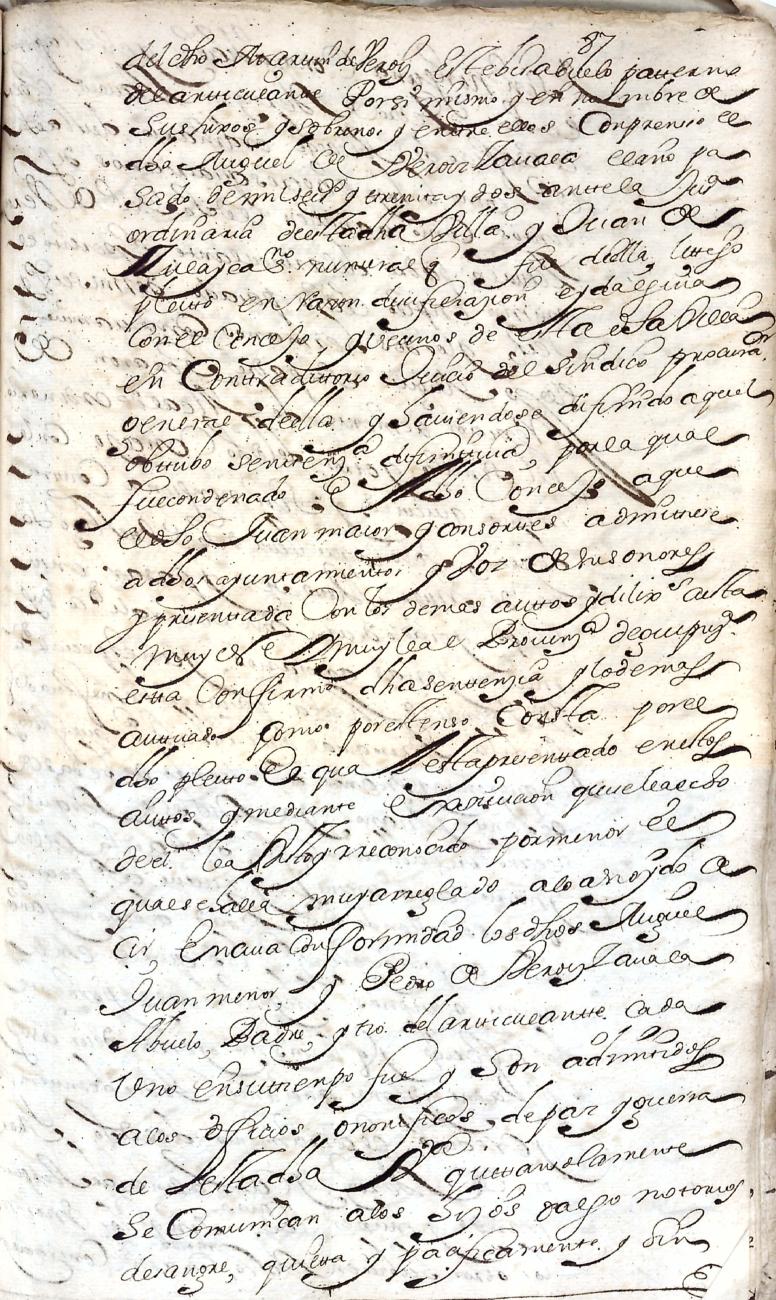 87
del dho Martin de Beroiz tesebisabuelo paterno
del articulante Por si mismo y en nombre de
Sus hijos y sobrinos y entre ellos Conprenso el
dho Miguel de Beroiz Zavala el año pa
sado de mil seisos y treinta y dos ante la Jusa
ordinaria de esta dha Villa y Juan de
esno numeral q fue della, litigo
pleito en raçon de su filiaçion e ydalguia
Con el Concejo y vecinos de esta dha Villa
en Contraditorio Juicio del sindico procurador
general della y haviendose difinido aquel
obtubo sentenza difinitiva por la qual
fue condenado el dho Concejo a que
el dho Juan maior y consortes admitiese
a dhos ayuntamientos y Goz de sus onores
y presentada Con los demas autos y dilixs en esta
muy e muy leal Provinza de guipuza
esta Confirmo dha sentenzia y lo demas
autuado como por estenso Consta por el
dho pleito El qual esta presentado en estos
autos y mediante el que se le a echo
de el lea visto y rreconocido por menor el
qual se alla muy arreglado a lo a oydo de
cir, En cuia Conformidad los dhos Miguel
Juan menor, y Pedro de Beroiz Zavala
Abuelo, Padre, y tio del articulante cada
Uno en su tienpo fue y son admitidos
a los oficios onorificos de paz y guerra
de esta dha Va que tan solamente
se Comunican a los hijos dalgo notorios
de sangre, quieta y pacificamente y sin